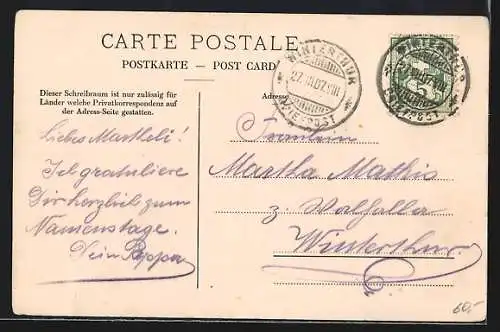 CARTE POSTALE
POSTKARTE — POST CARD
Dieser Schreibraum ist nur zulässig für
Länder welche Privatkorrespondenz auf
der Adress-Seite gestatten.
Adresse
WINTERTHUR
27.III.07.VIII
BRIEFPOST
WINTERTHUR
BRIEFPOST
Liebes Martheli!
Ich gratuliere
Dir herzlich zum
Namenstage.
Dein Pappa
Fräulein
Martha Mathis
z. Walhalla
Winterthur.
60,-